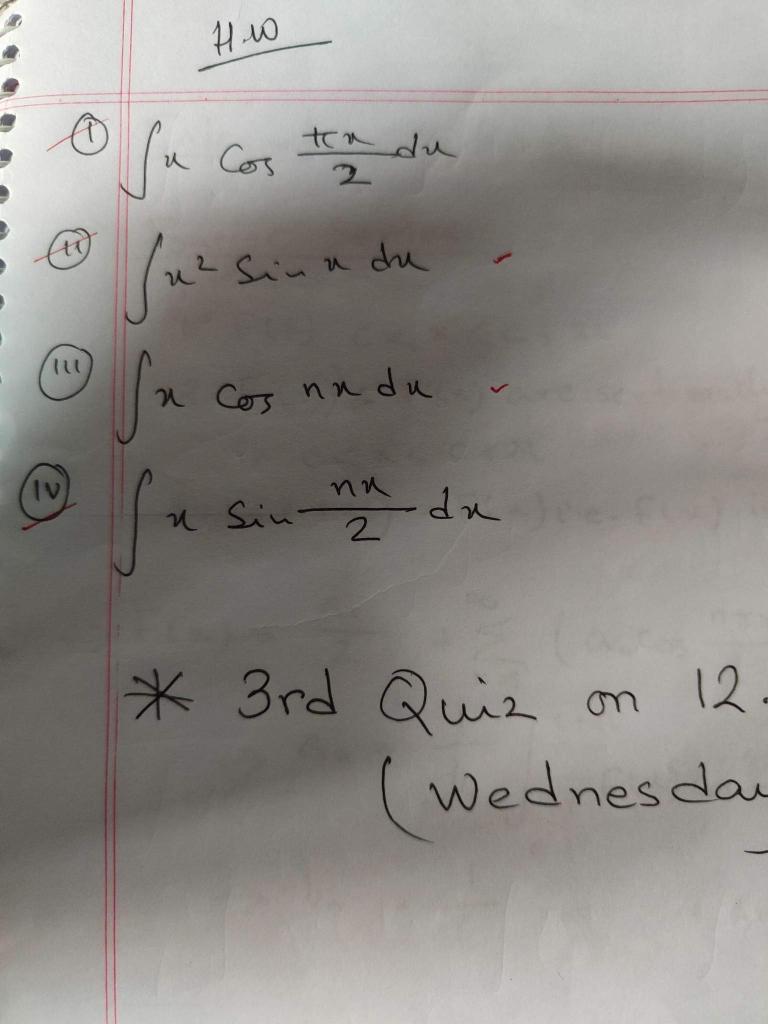 H.W
(I) ∫x Cos πx/2 dx
(II) ∫x² Sin x dx
(III) ∫x Cos nx dx
(IV) ∫x Sin nx/2 dx
* 3rd Quiz on 12.
(Wednesday